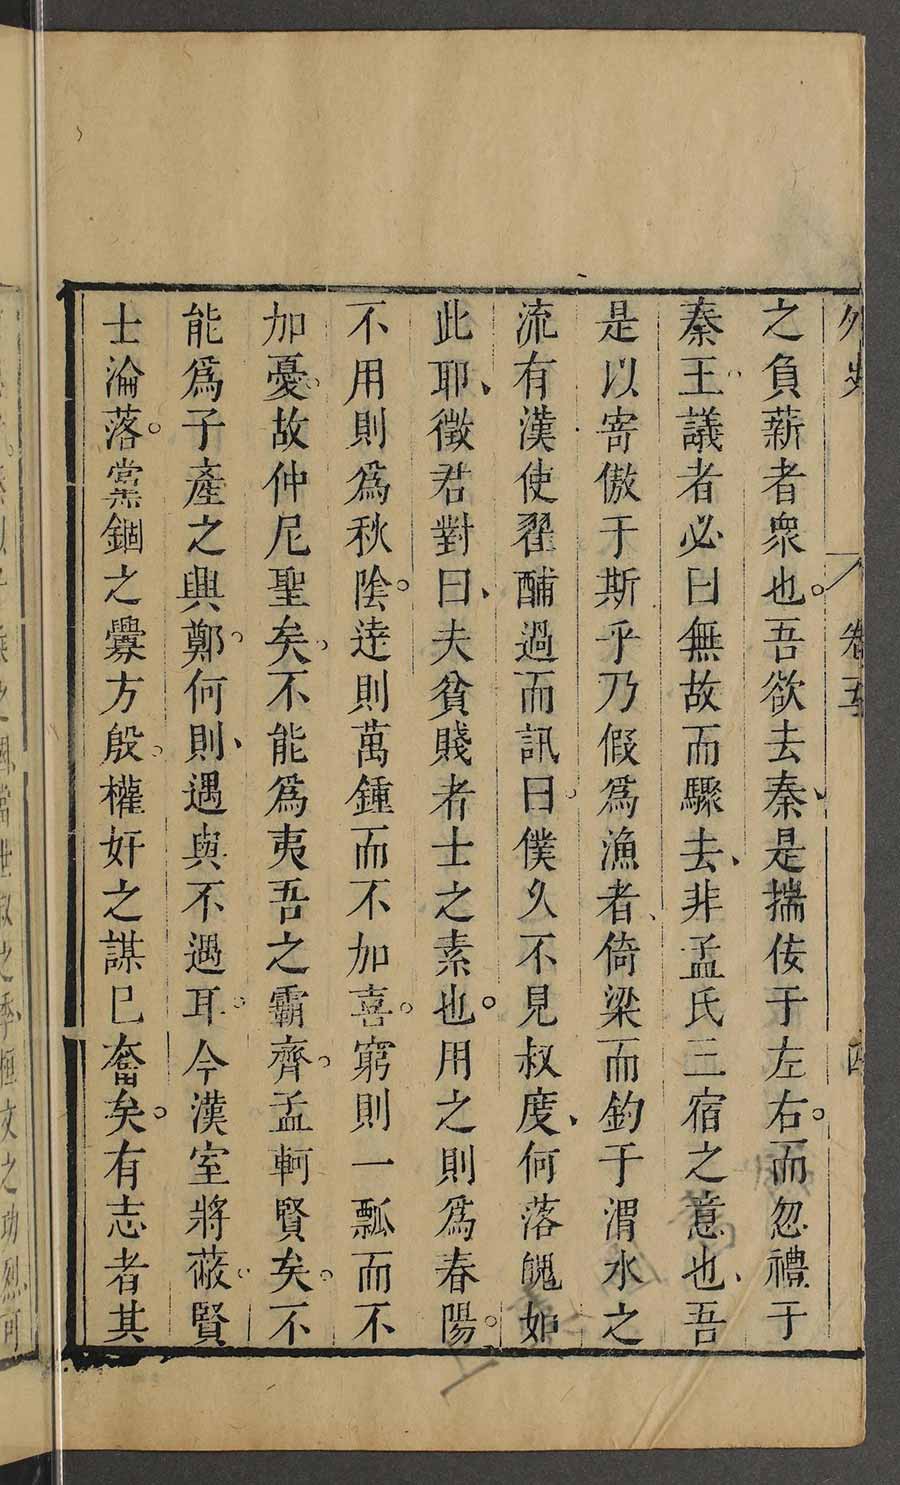 外史 卷五 四
之負薪者衆也。吾欲去秦、是揣侫于左右。而忽禮于
秦王、議者必曰無故而驟去、非孟氏三宿之意也、吾
是以寄傲于斯乎乃假爲漁者、倚梁而釣于渭水之
流有漢使翟酺過而訊曰、僕久不見叔度、何落魄如
此耶、徵君對曰、夫貧賤者士之素也。用之則爲春陽。
不用則爲秋陰。逹則萬鍾而不加喜。窮則一瓢而不
加憂、故仲尼聖矣、不能爲夷吾之霸齊。孟軻賢矣。不
能爲子產之興鄭。何則、遇與不遇耳。今漢室將蔽。賢
士淪落。黨錮之釁方殷。權奸之謀已奮矣。有志者其